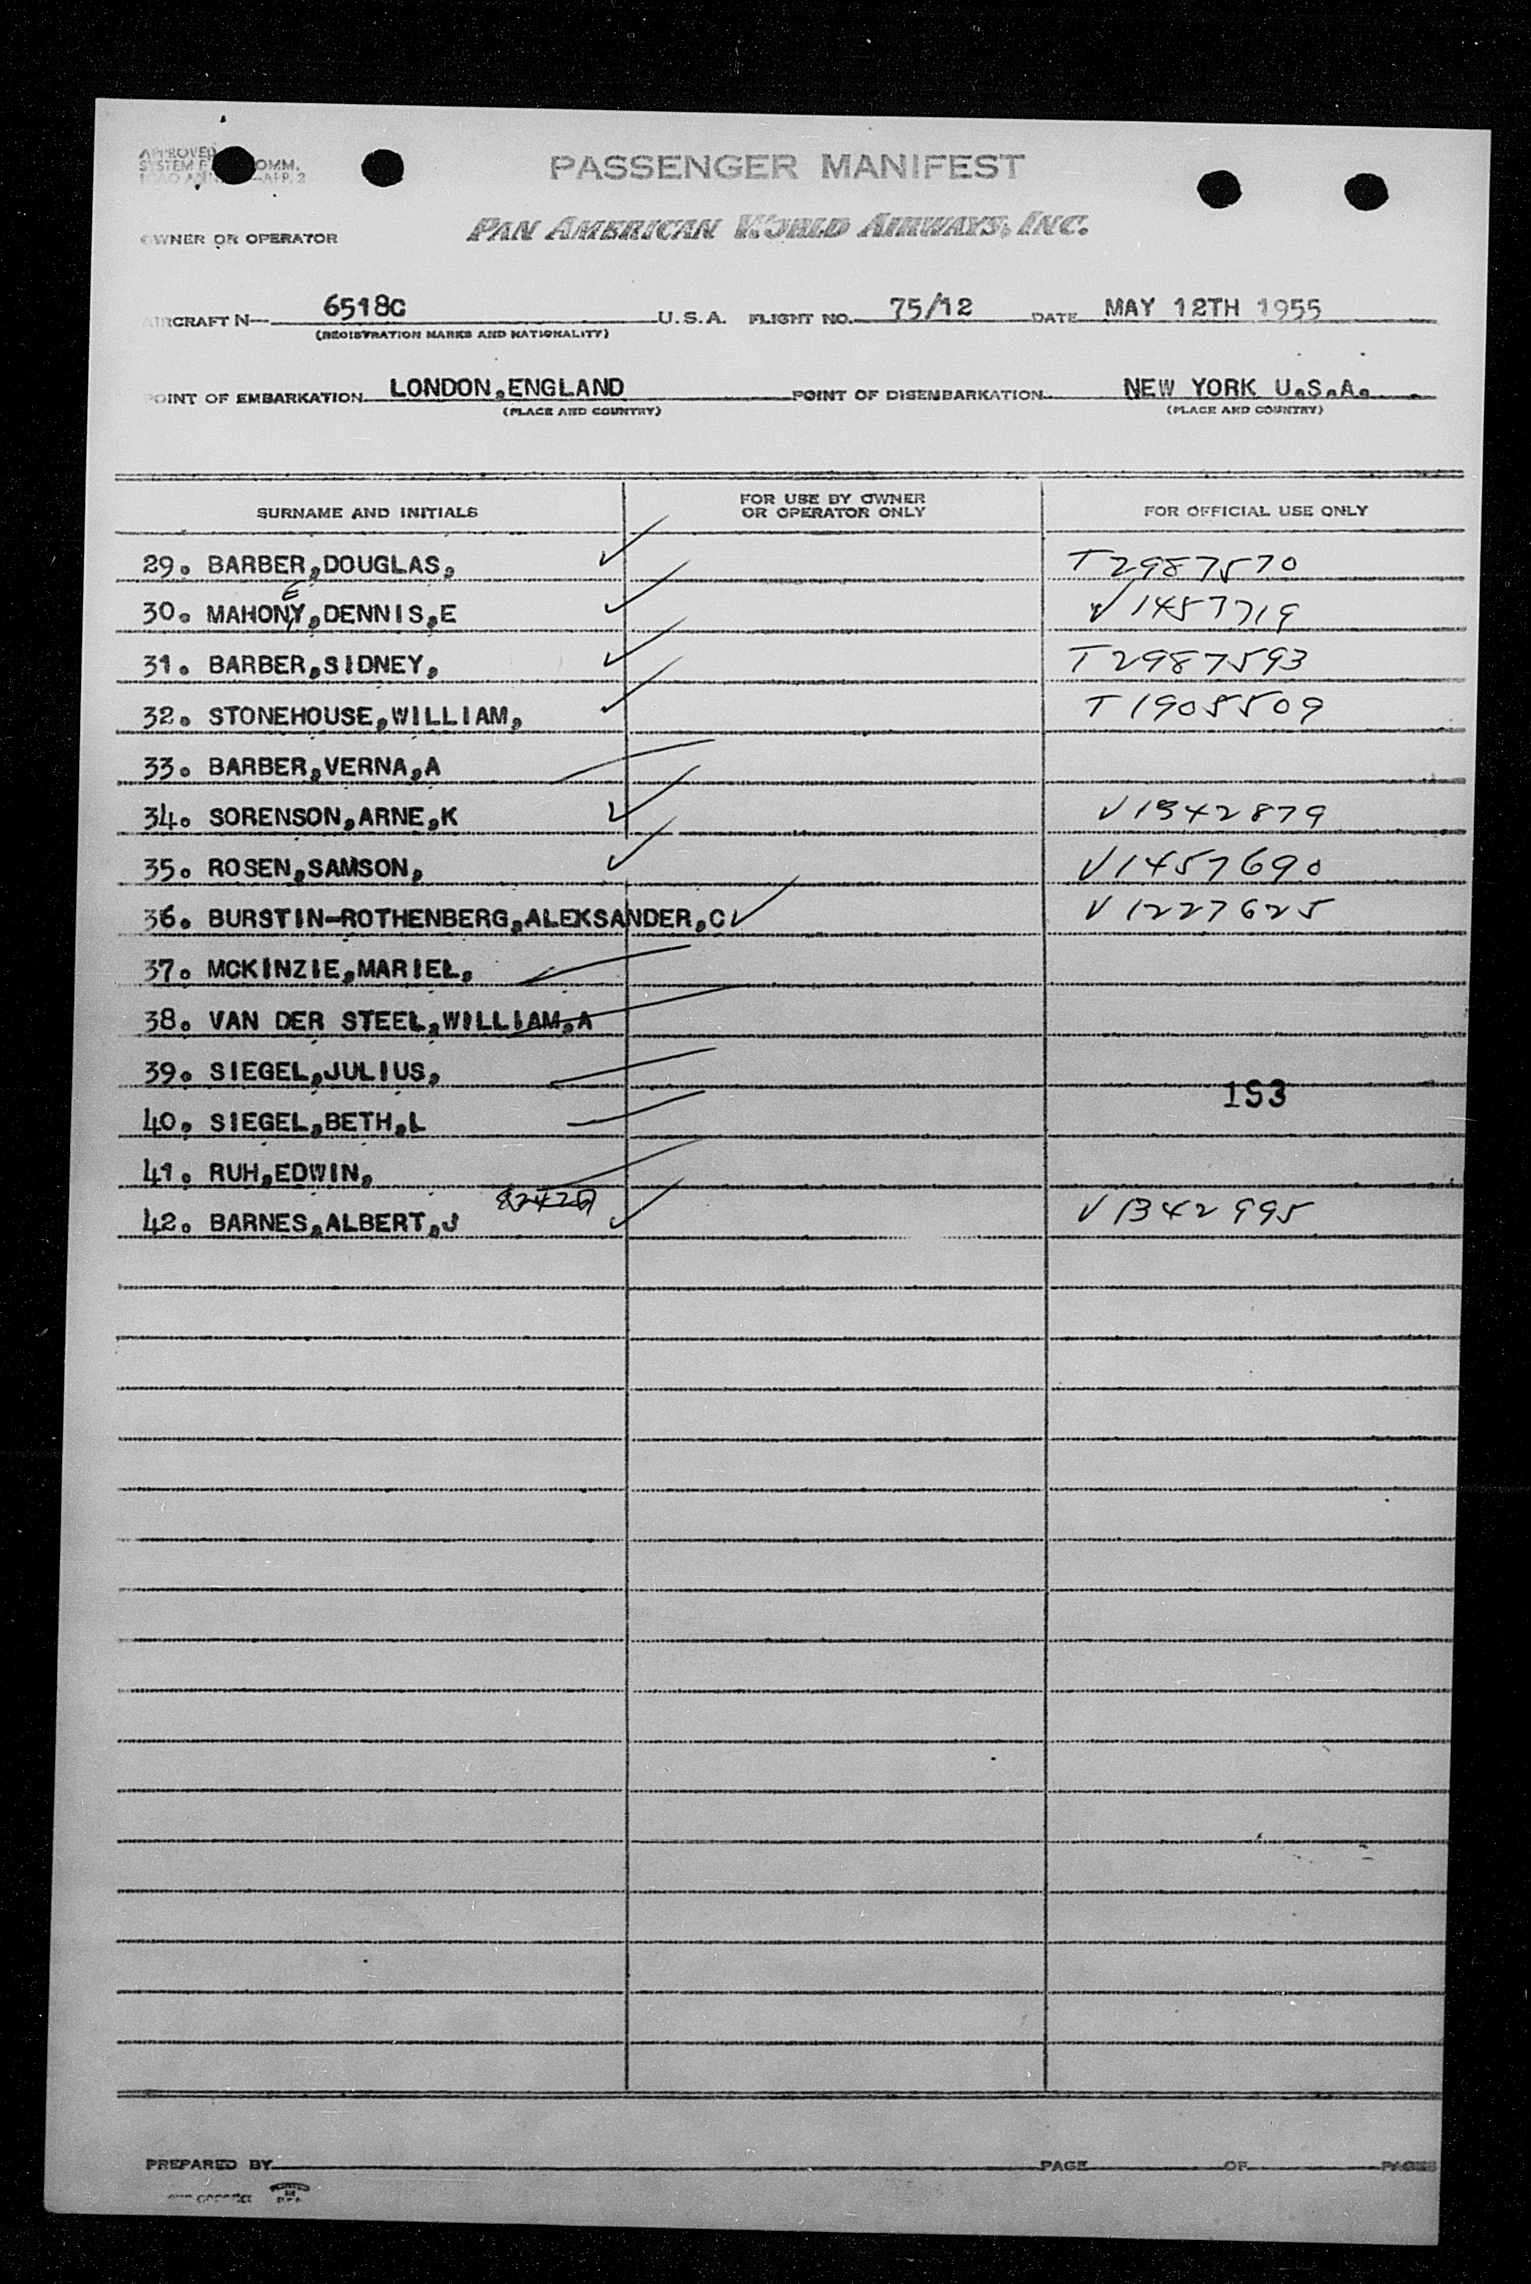 APPROVED
SYSTEM F COMM.
PASSENGER MANIFEST
OWNER OR OPERATOR PAN AMERICAN WORLD AIRWAYS, INC.
AIRCRAFT N— 6518C U.S.A. FLIGHT NO. 75/12 DATE MAY 12TH 1955
(REGISTRATION MARKS AND NATIONALITY)
POINT OF EMBARKATION LONDON,ENGLAND POINT OF DISEMBARKATION NEW YORK U.S.A.
(PLACE AND COUNTRY) (PLACE AND COUNTRY)
SURNAME AND INITIALS FOR USE BY OWNER OR OPERATOR ONLY FOR OFFICIAL USE ONLY
29. BARBER,DOUGLAS, ✓ T2987570
E
30. MAHONY,DENNIS,E ✓ V1457719
31. BARBER,SIDNEY, ✓ T2987593
32. STONEHOUSE,WILLIAM, ✓ T1905509
33. BARBER,VERNA,A
34. SORENSON,ARNE,K ✓ V1342879
35. ROSEN,SAMSON, ✓ V1457690
36. BURSTIN-ROTHENBERG,ALEKSANDER,C ✓ V1227625
37. MCKINZIE,MARIEL,
38. VAN DER STEEL,WILLIAM,A
39. SIEGEL,JULIUS,
153
40. SIEGEL,BETH,L
41. RUH,EDWIN,
42. BARNES,ALBERT,J ✓ V1342995
PREPARED BY PAGE OF PAGES